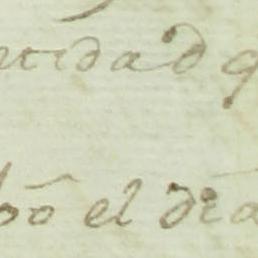 tidad q
bō el dia